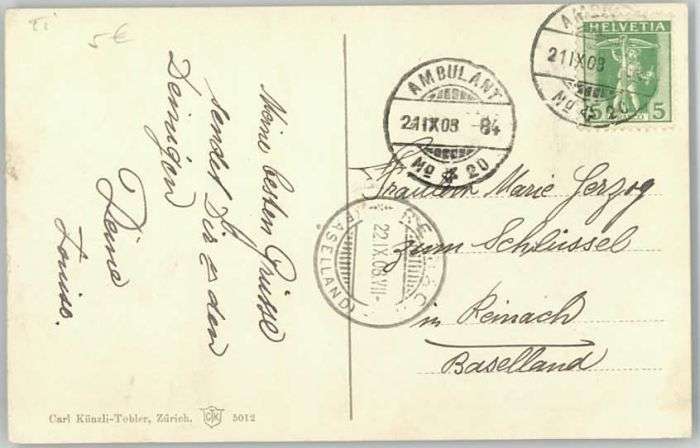 5€
Meine besten Grüsse
sendet Dir & den
Deinigen
Deine
Louise.
AMBULANT
21 IX 08 - 84
No 20
AMBU
21 IX 08
No 20
HELVETIA
5
Fräulein Marie Herzog
zum Schlüssel
in Reinach
Baselland
22 IX 08 VII-
(BASELLAND)
Carl Künzli-Tobler, Zürich. 5012